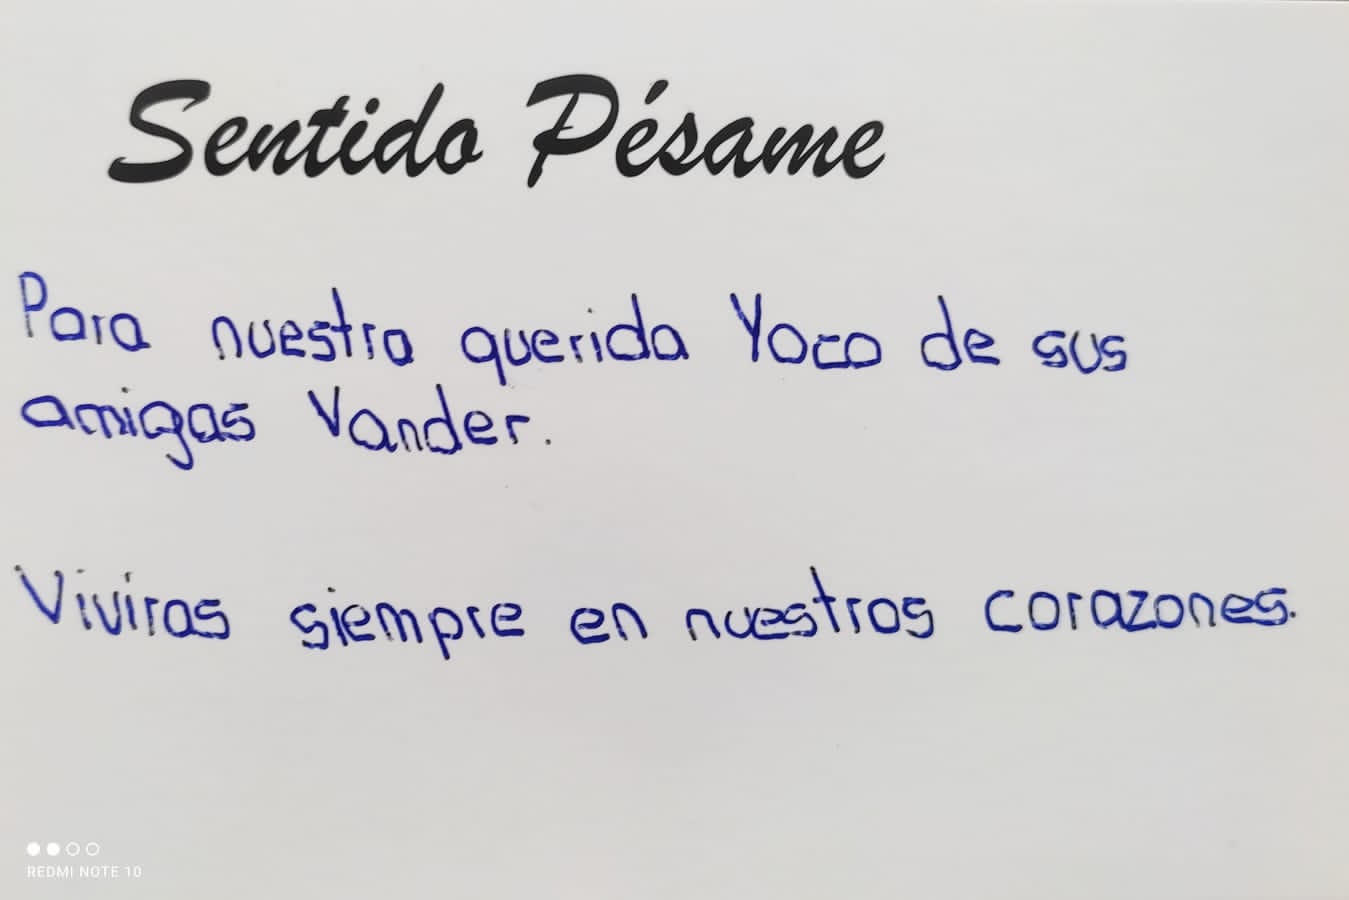 Sentido Pésame
Para nuestra querida Yoco de sus
amigas Vander.
Viviras siempre en nuestros corazones.
REDMI NOTE 10